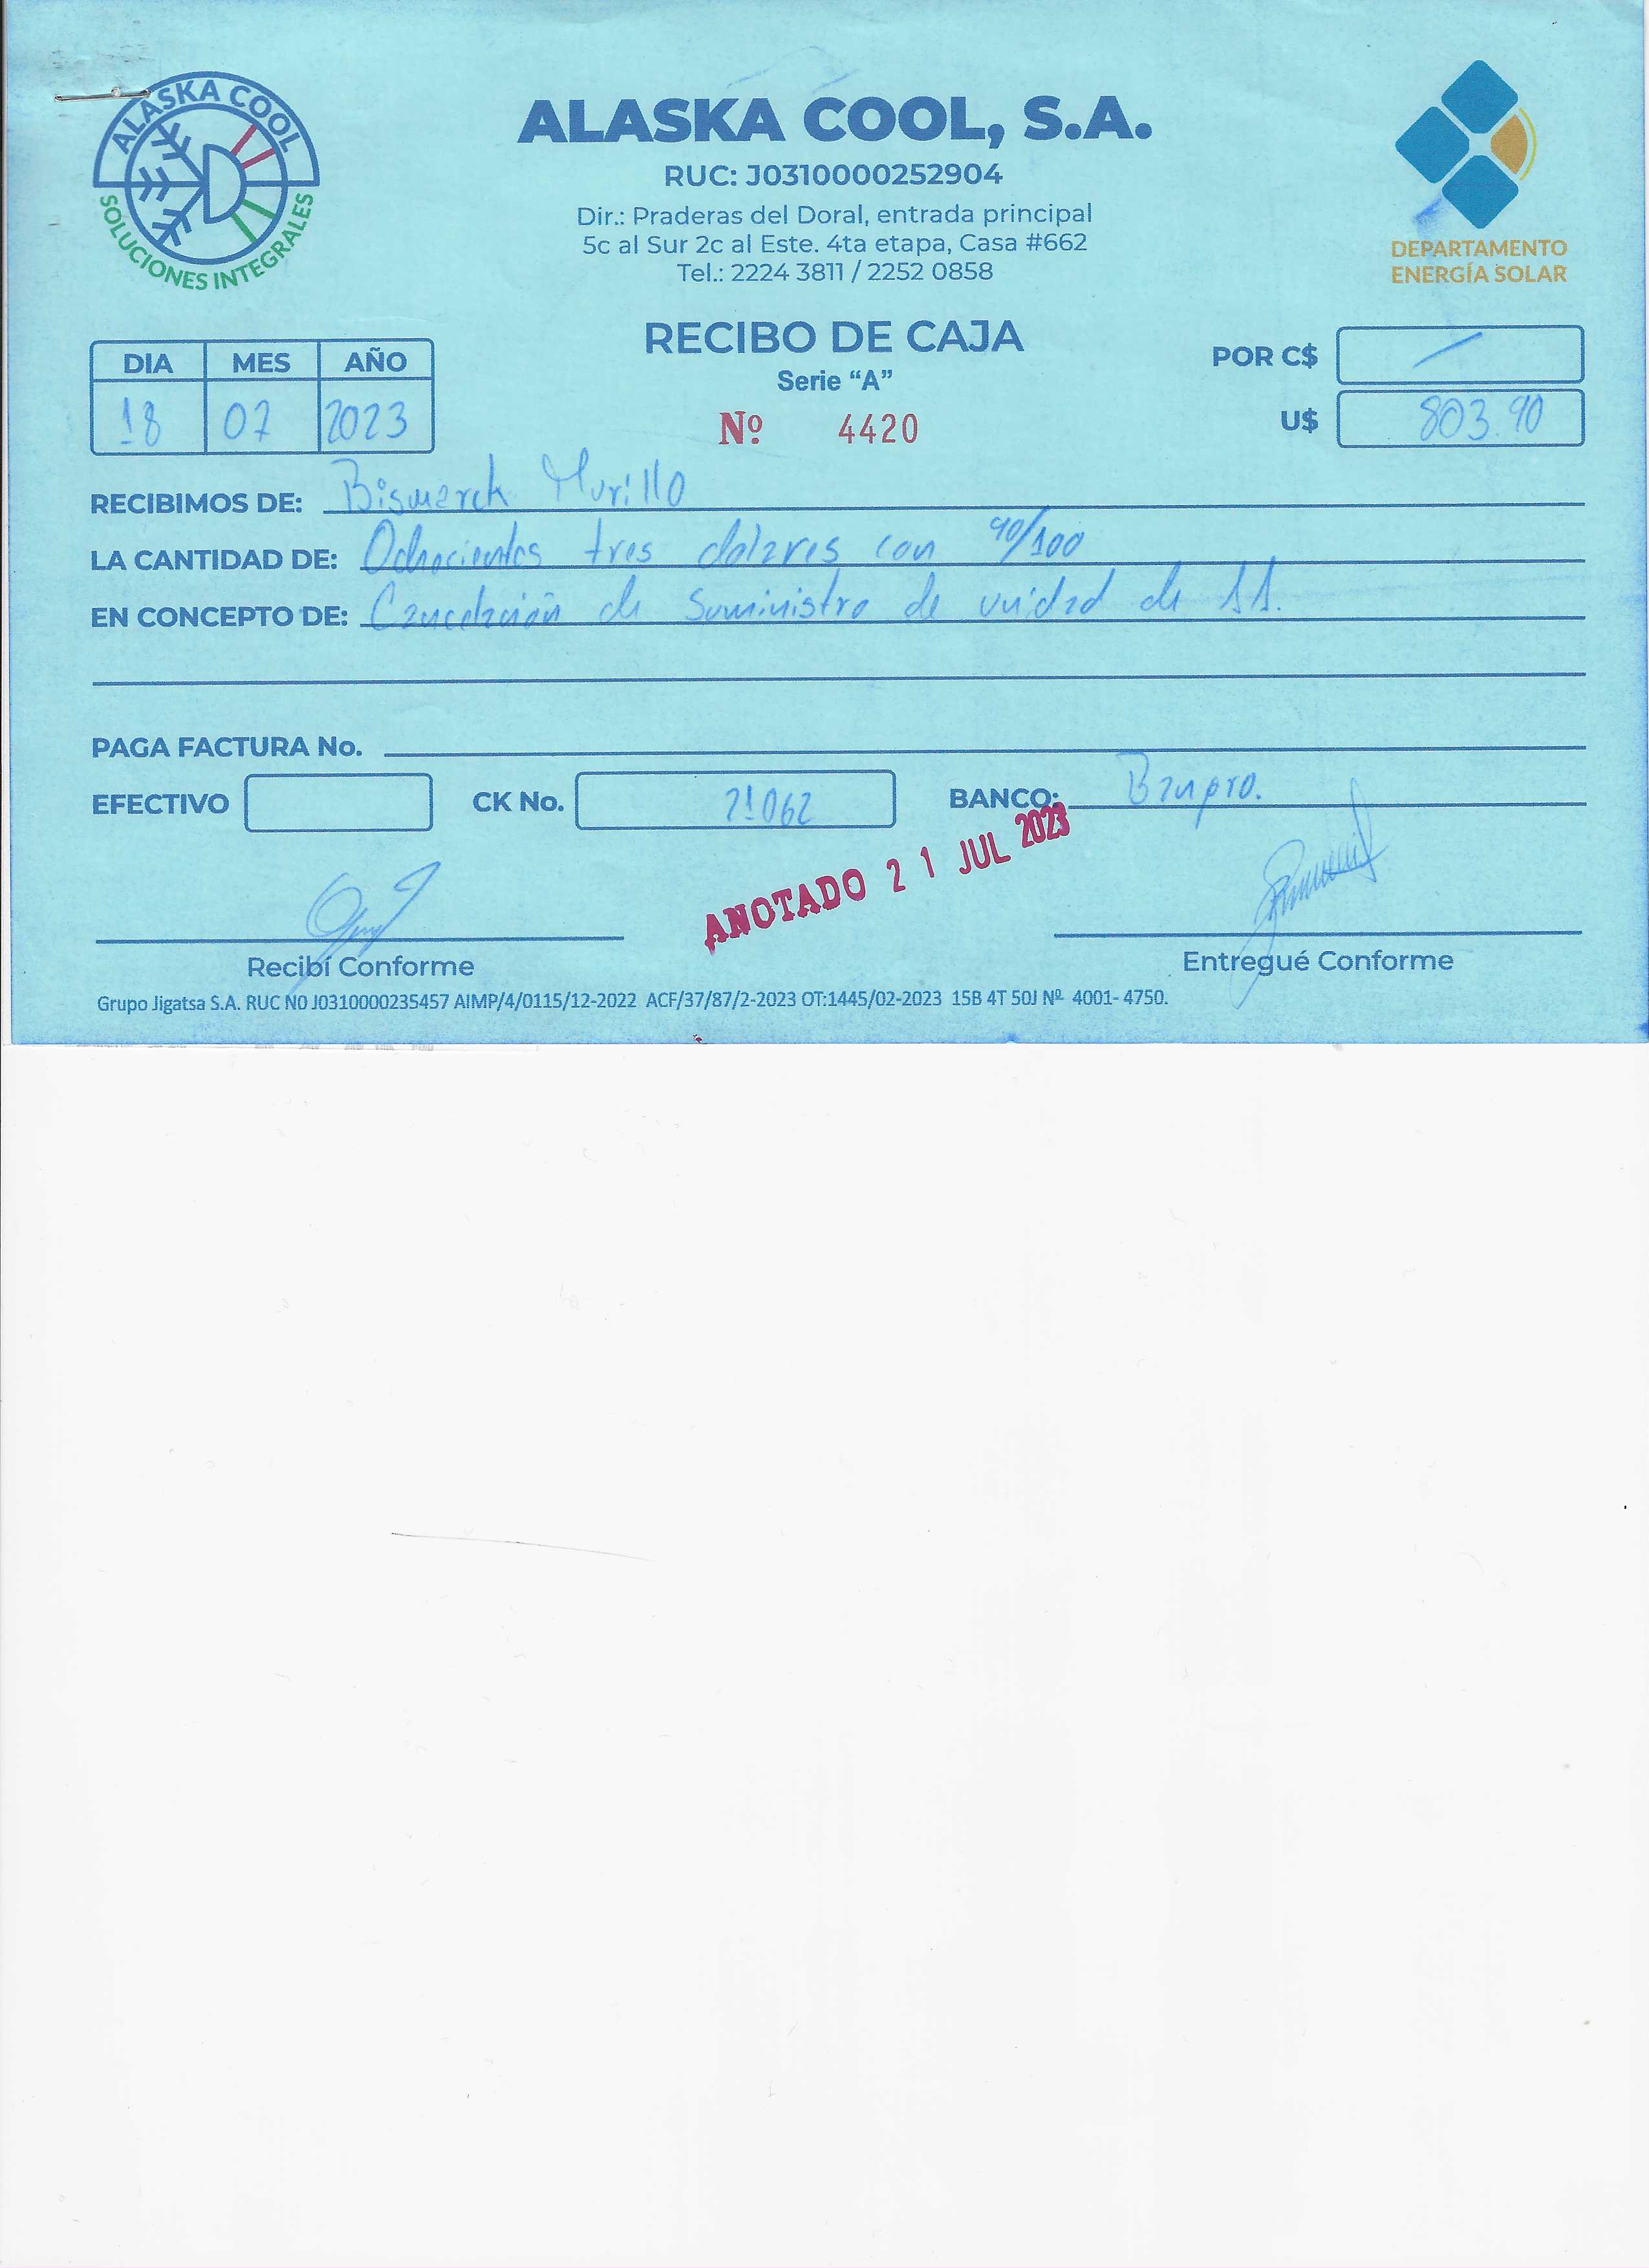 ALASKA COOL
SOLUCIONES INTEGRALES
ALASKA COOL, S.A.
RUC: J0310000252904
Dir.: Praderas del Doral, entrada principal
5c al Sur 2c al Este. 4ta etapa, Casa #662
Tel.: 2224 3811 / 2252 0858
DEPARTAMENTO
ENERGÍA SOLAR
RECIBO DE CAJA
Serie “A”
Nº 4420
DIA MES AÑO
18 07 2023
POR C$ —
U$ 803.90
RECIBIMOS DE: Bismarck Murillo
LA CANTIDAD DE: Ochocientos tres dolares con 90/100
EN CONCEPTO DE: Cancelación de Suministro de unidad de AA.
PAGA FACTURA No.
EFECTIVO CK No. 21062 BANCO: Banpro.
ANOTADO 21 JUL 2023
Recibí Conforme Entregué Conforme
Grupo Jigatsa S.A. RUC N0 J0310000235457 AIMP/4/0115/12-2022 ACF/37/87/2-2023 OT:1445/02-2023 15B 4T 50J Nº 4001- 4750.